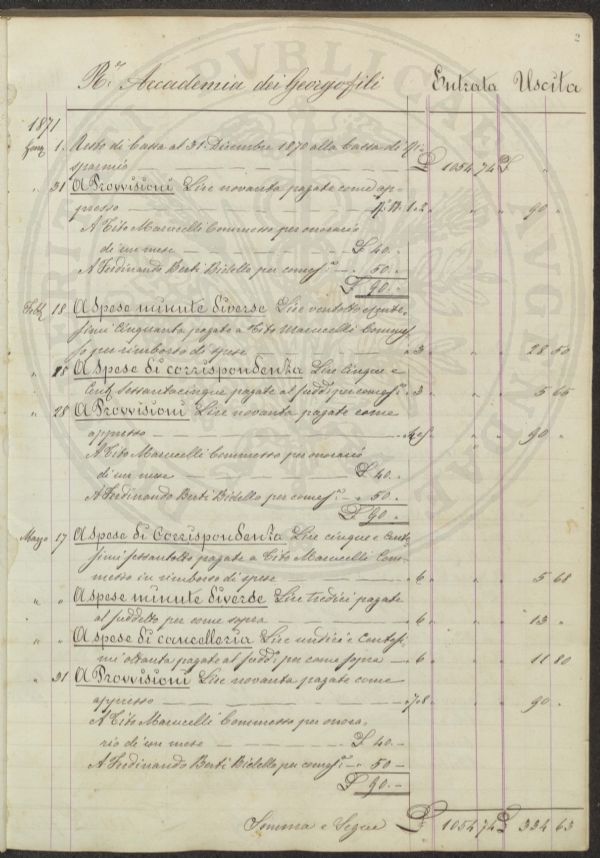 2
R.ª Accademia dei Georgofili Entrata Uscita
1871
Genn. 1. Resto di Cassa al 31. Dicembre 1870 alla Cassa di Ri-
sparmio £ 1054 74 £ "
" 31 A Provvisioni Lire novanta pagate come ap-
presso — N.i 1.2 " " 90 "
A Tito Marucelli Commesso per onorario
di un mese — £ 40. "
A Ferdinando Berti Bidello per come s.ª — " 50. "
£ 90. "
Febb. 18 A Spese minute diverse Lire ventotto e cente-
simi cinquanta pagate a Tito Marucelli Commes-
so per rimborso di spese — " 3 " " 28 50
" A Spese di corrispondenza Lire cinque e
Cent. sessantacinque pagate al sudd.º per come s.ª " 3 " " 5 65
" 28 A Provvisioni Lire novanta pagate come
appresso — " " 90 "
A Tito Marucelli Commesso per onorario
di un mese — £ 40. "
A Ferdinando Berti Bidello per come s.ª — " 50. "
£ 90. "
Marzo 17 A Spese di Corrispondenza Lire cinque e Cente-
simi sessantotto pagate a Tito Marucelli Com-
messo in rimborso di spese — " 6 " " 5 68
" " A Spese minute diverse Lire tredici pagate
al suddetto per come sopra — " 6 " " 13 "
" " A Spese di cancelleria Lire undici e Centesi-
mi ottanta pagate al sudd.º per come sopra — " 6 " " 11 80
" 31 A Provvisioni Lire novanta pagate come
appresso — " 7.8 " " 90 "
A Tito Marucelli Commesso per onora-
rio di un mese — £ 40. —
A Ferdinando Berti Bidello per come s.ª — " 50 —
£ 90. —
Somma e Segue £ 1054 74 £ 334 63